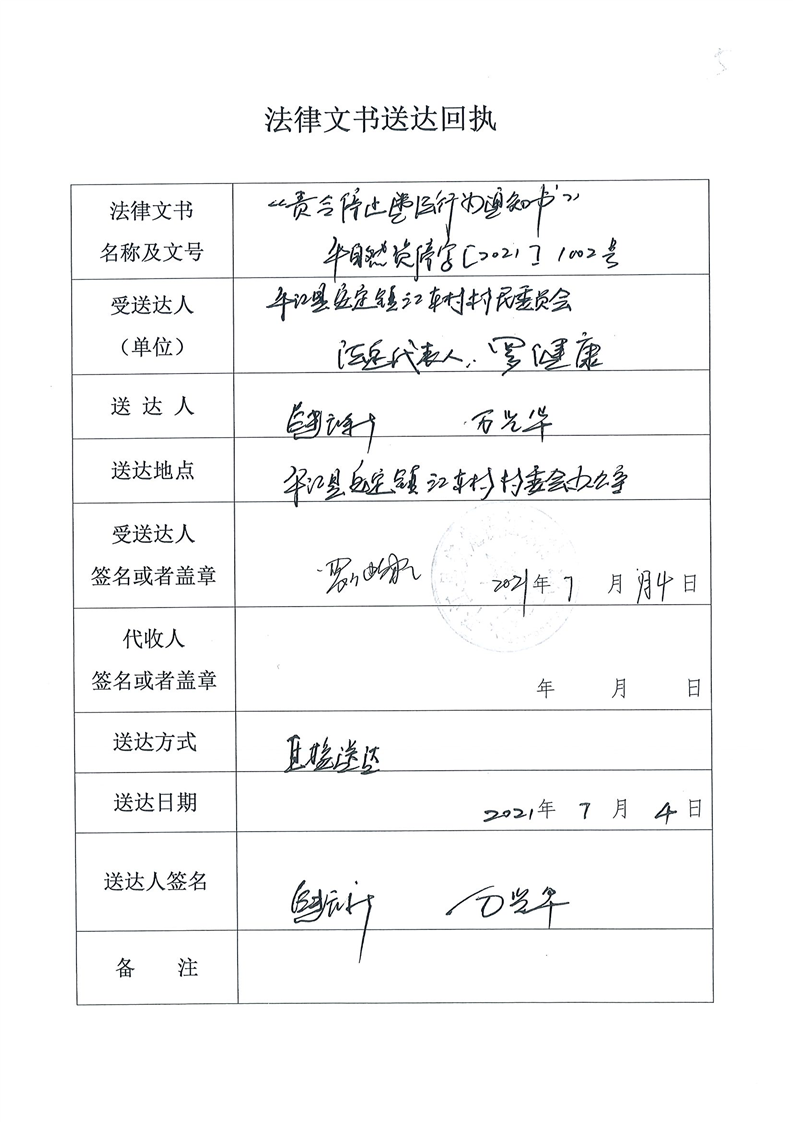 法律文书送达回执
法律文书
名称及文号
《责令停止违法行为通知书》
平自然资停字[2021]1002号
受送达人
（单位）
平江县安定镇江东村村民委员会
法定代表人：罗健康
送 达 人
万兴华
送达地点
平江县安定镇江东村村委会办公室
受送达人
签名或者盖章
2021年 7 月 4 日
代收人
签名或者盖章
年 月 日
送达方式
直接送达
送达日期
2021年 7 月 4 日
送达人签名
万兴华
备 注